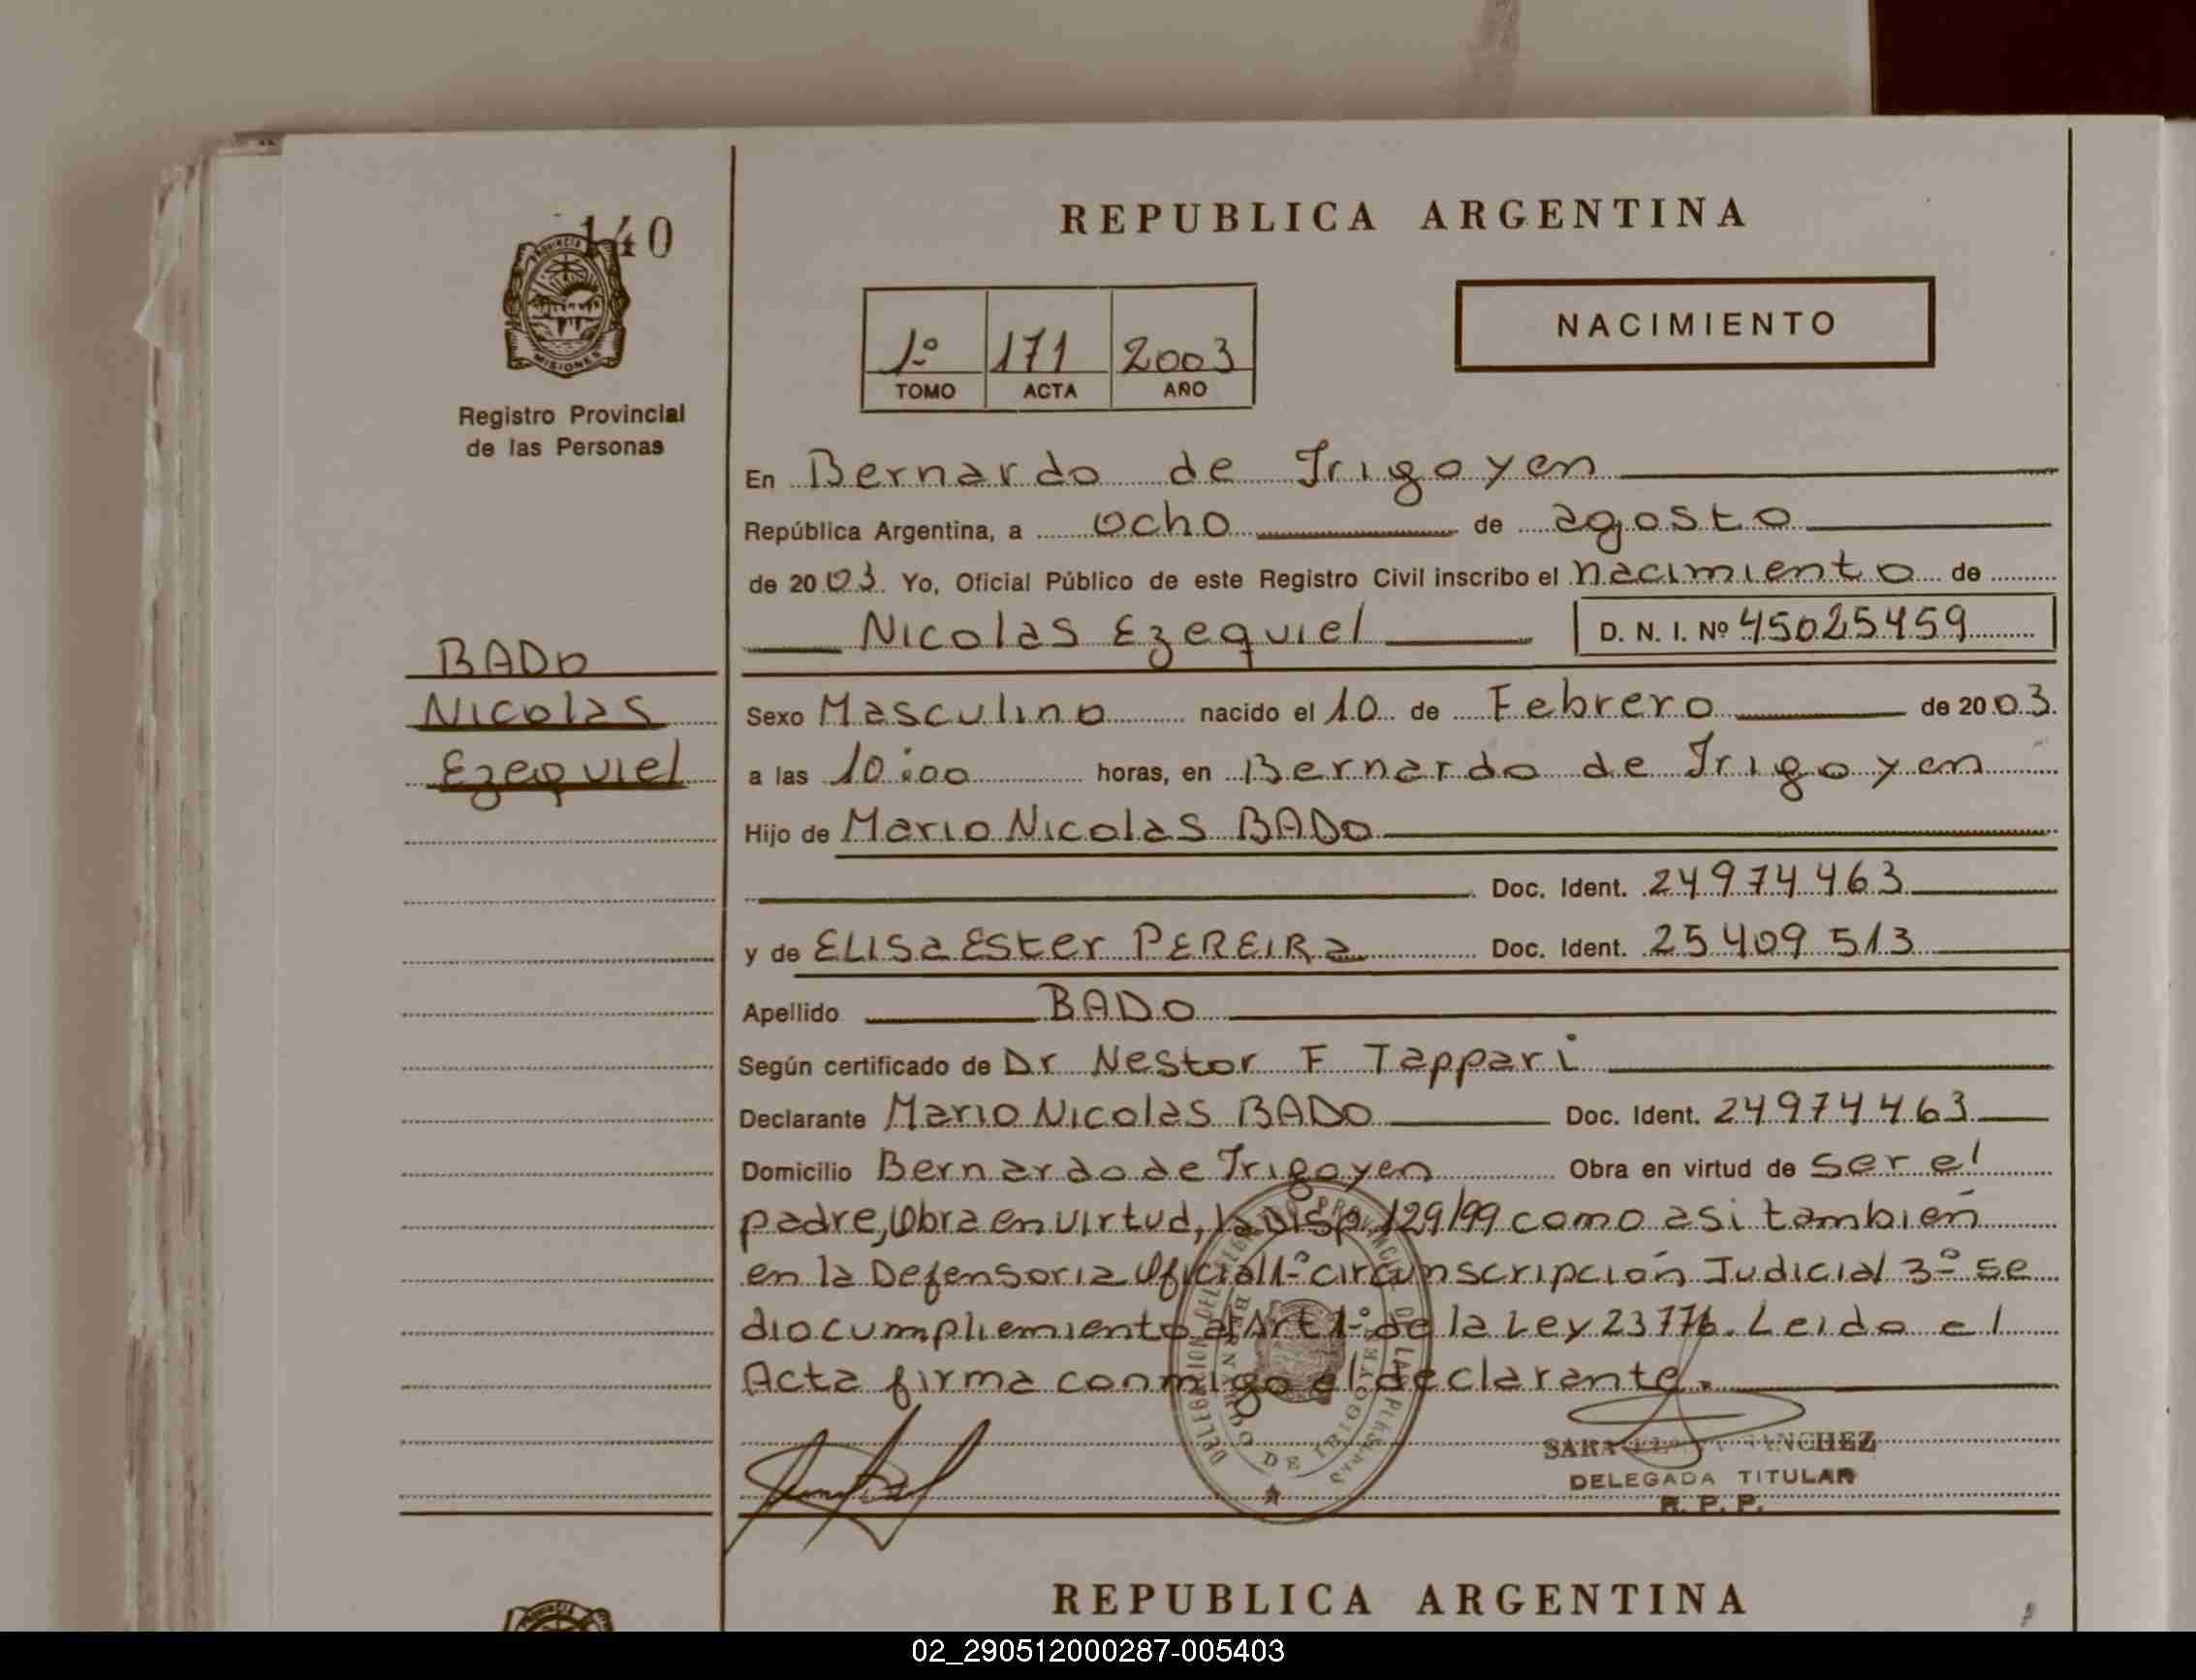 140
PROVINCIA
MISIONES
Registro Provincial
de las Personas
REPUBLICA ARGENTINA
NACIMIENTO
1º 171 2003
TOMO ACTA AÑO
En Bernardo de Irigoyen
República Argentina, a ocho de agosto
de 2003 Yo, Oficial Público de este Registro Civil inscribo el nacimiento de
Nicolas Ezequiel D. N. I. Nº 45025459
BADO
Nicolas
Ezequiel
Sexo Masculino nacido el 10 de Febrero de 2003
a las 10:00 horas, en Bernardo de Irigoyen
Hijo de Mario Nicolas BADO
Doc. Ident. 24974463
y de ELISa Ester PEREIRa Doc. Ident. 25409513
Apellido BADO
Según certificado de Dr Nestor F Tappari
Declarante Mario Nicolas BADO Doc. Ident. 24974463
Domicilio Bernardo de Irigoyen Obra en virtud de ser el
padre, Obra en virtud, la Disp 129/99 como asi también
en la Defensoria Oficial 1º circunscripción Judicial 3º se
dio cumpliemiento al Art 1º de la Ley 23776. Leido el
Acta firma conmigo el declarante.
SARA SANCHEZ
DELEGADA TITULAR
R. P. P.
REPUBLICA ARGENTINA
02_290512000287-005403